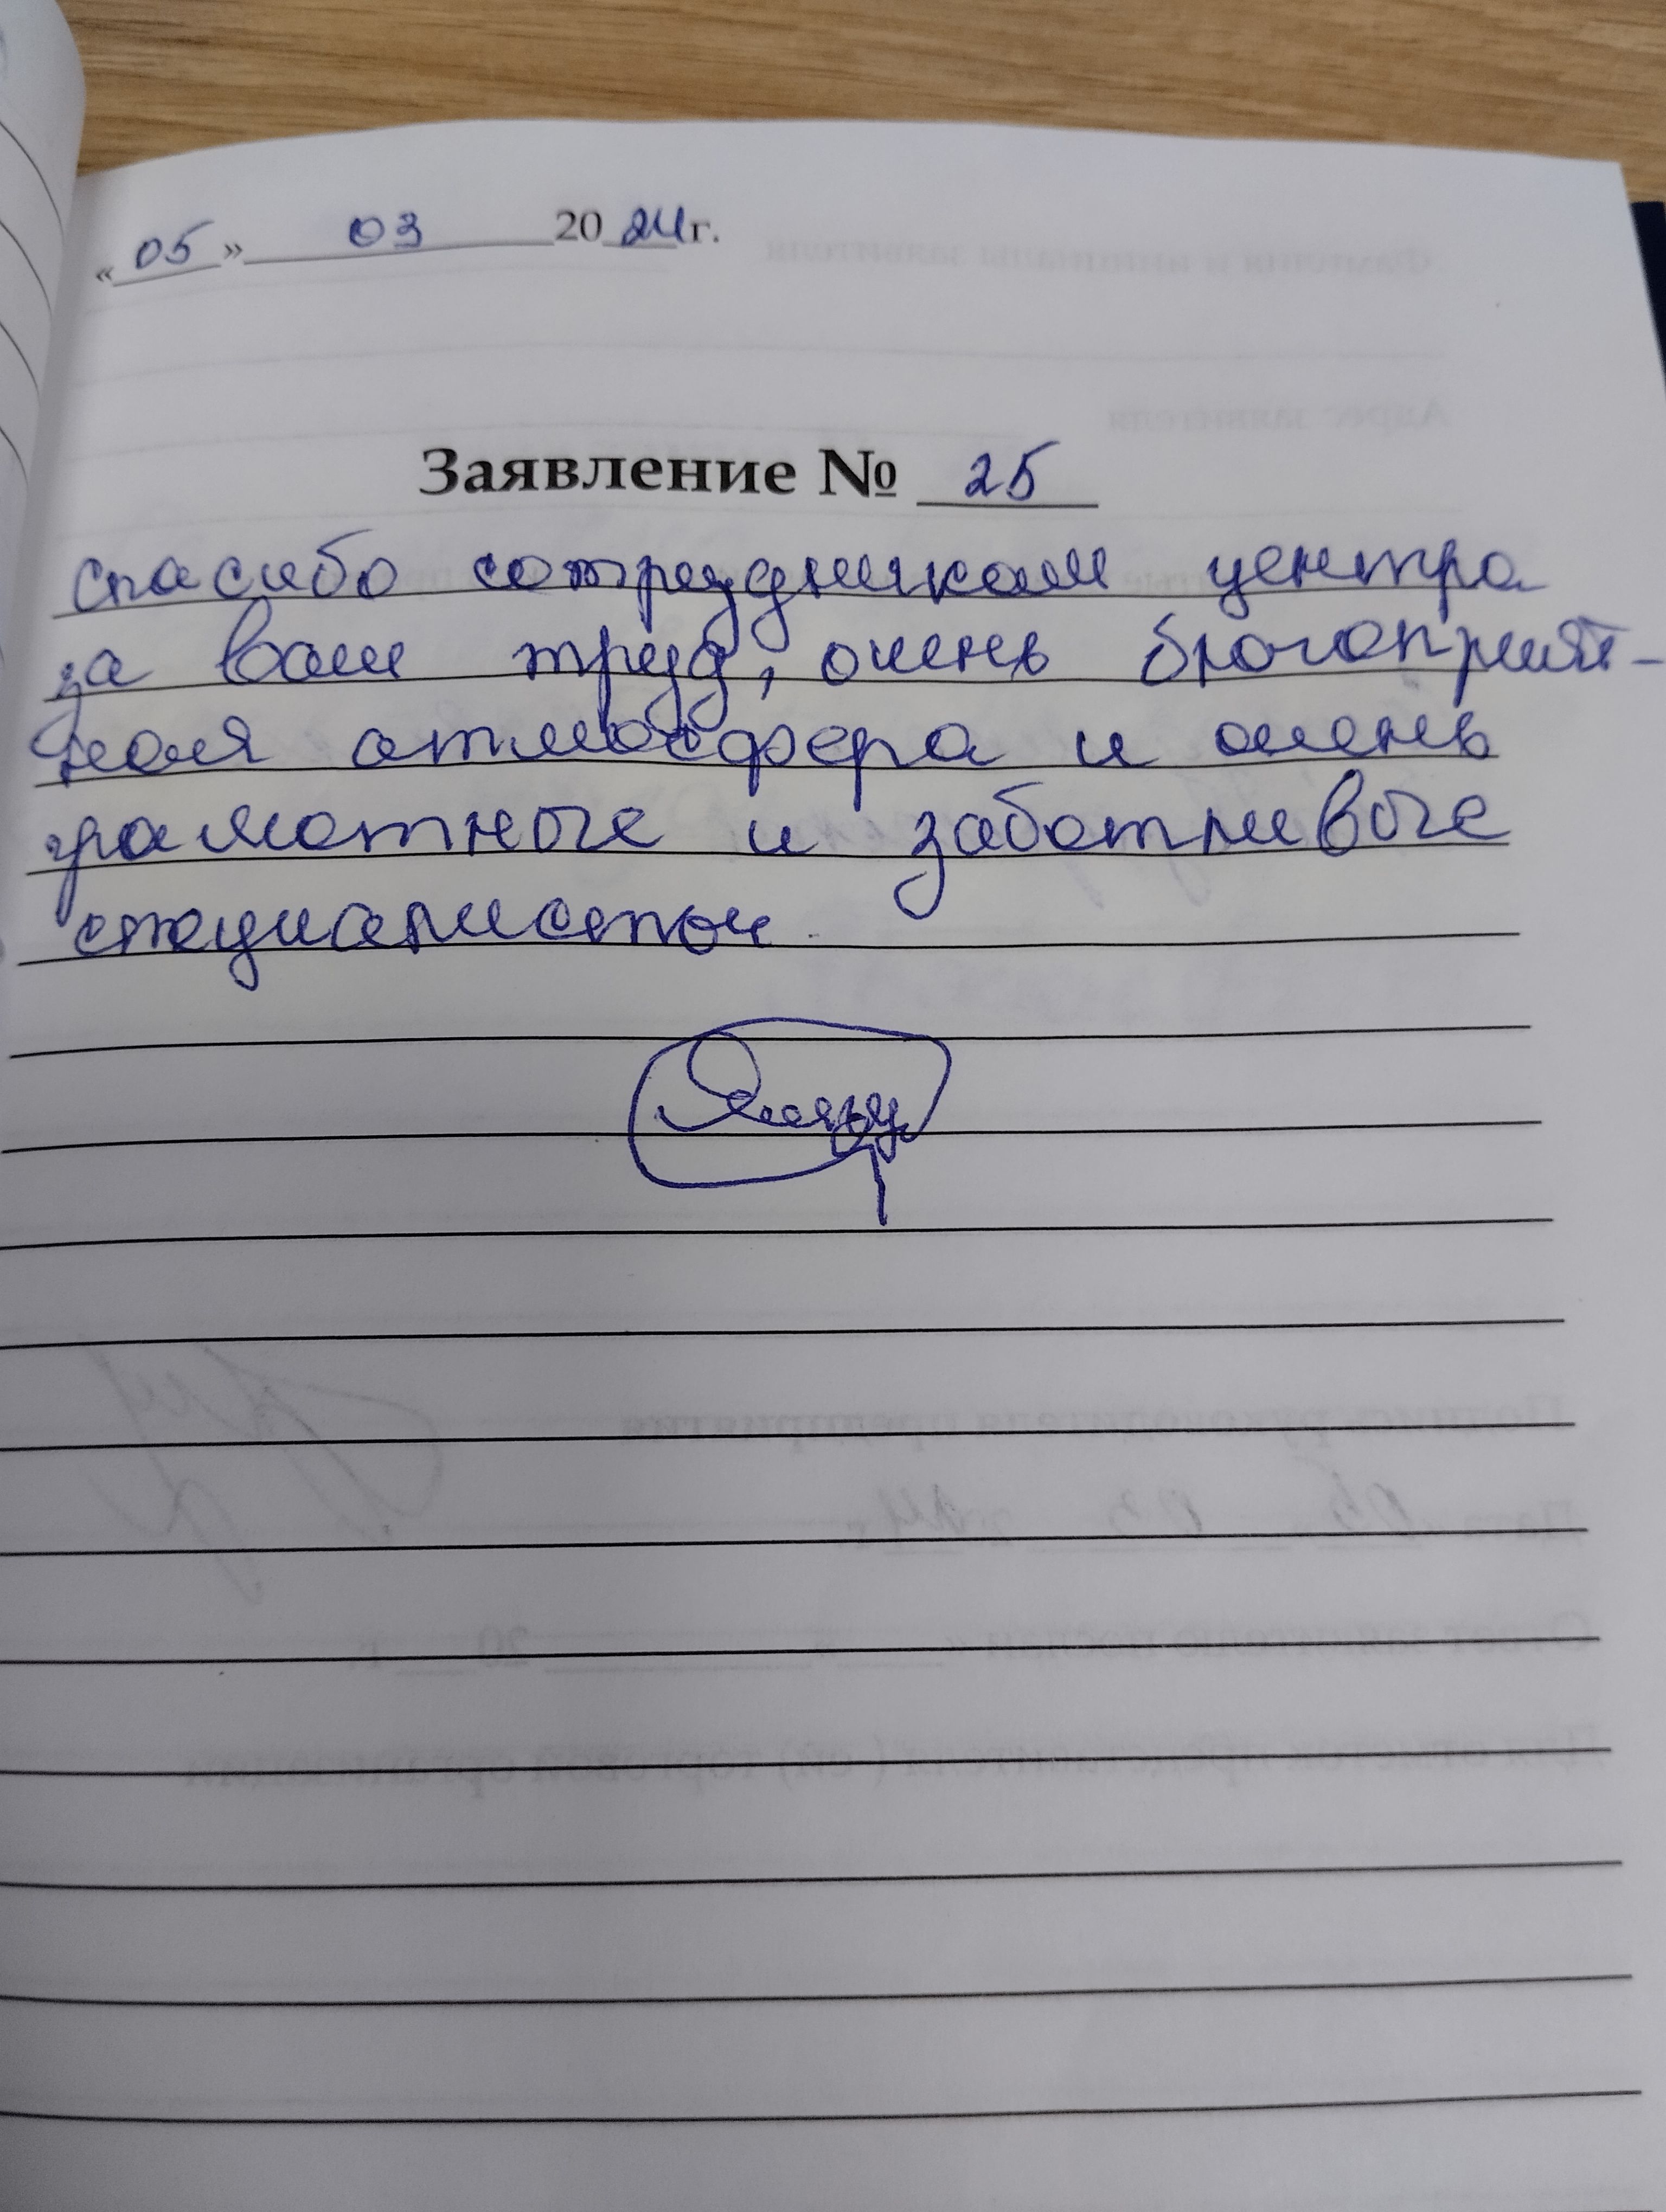 «05» 03 2024г.
Заявление № 25
спасибо сотрудникам центра
за ваш труд, очень благоприят-
ная атмосфера и очень
грамотные и заботливые
специалисты.